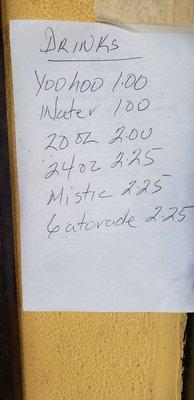 DRINKS
Yoohoo 1.00
Water 1.00
20 oz 2.00
24 oz 2.25
Mistic 2.25
Gatorade 2.25